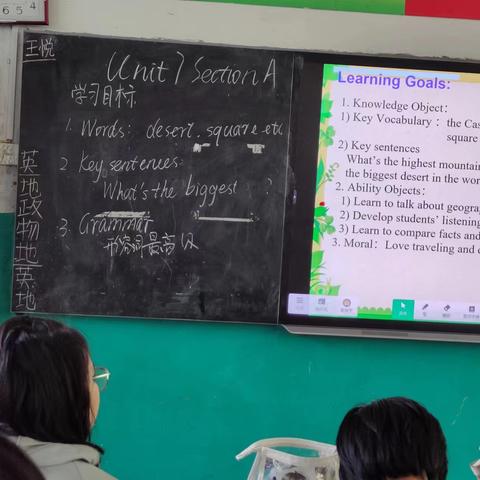 6 5 4
王悦
英
地
政
物
地
英
地
Unit 7 Section A
学习目标
1. Words: desert, square etc
2 Key sentences:
What's the biggest ?
3. Grammar
形容词最高级
Learning Goals:
1. Knowledge Object:
1) Key Vocabulary : the Cas
square
2) Key sentences
What's the highest mountain
the biggest desert in the wor
2. Ability Objects:
1) Learn to talk about geogra
2) Develop students' listening
3) Learn to compare facts and
3. Moral: Love traveling and